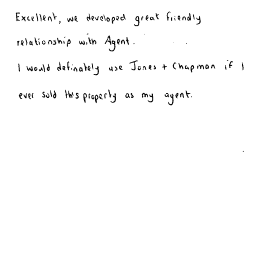 Excellent, we developed great friendly
relationship with Agent.
I would definately use Jones + Chapman if I
ever sold this property as my agent.